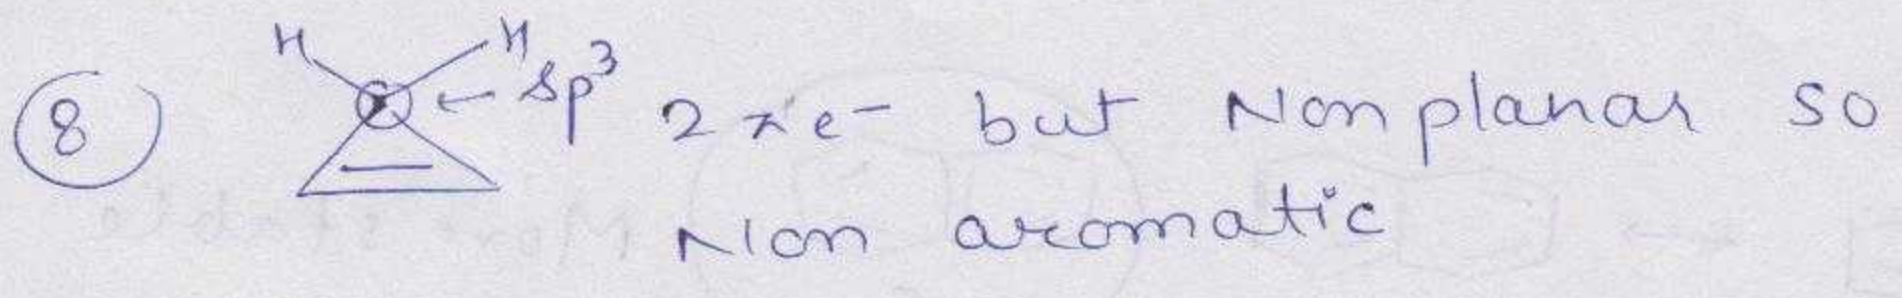 8 H H sp³ 2πe⁻ but Nonplanar so
Non aromatic